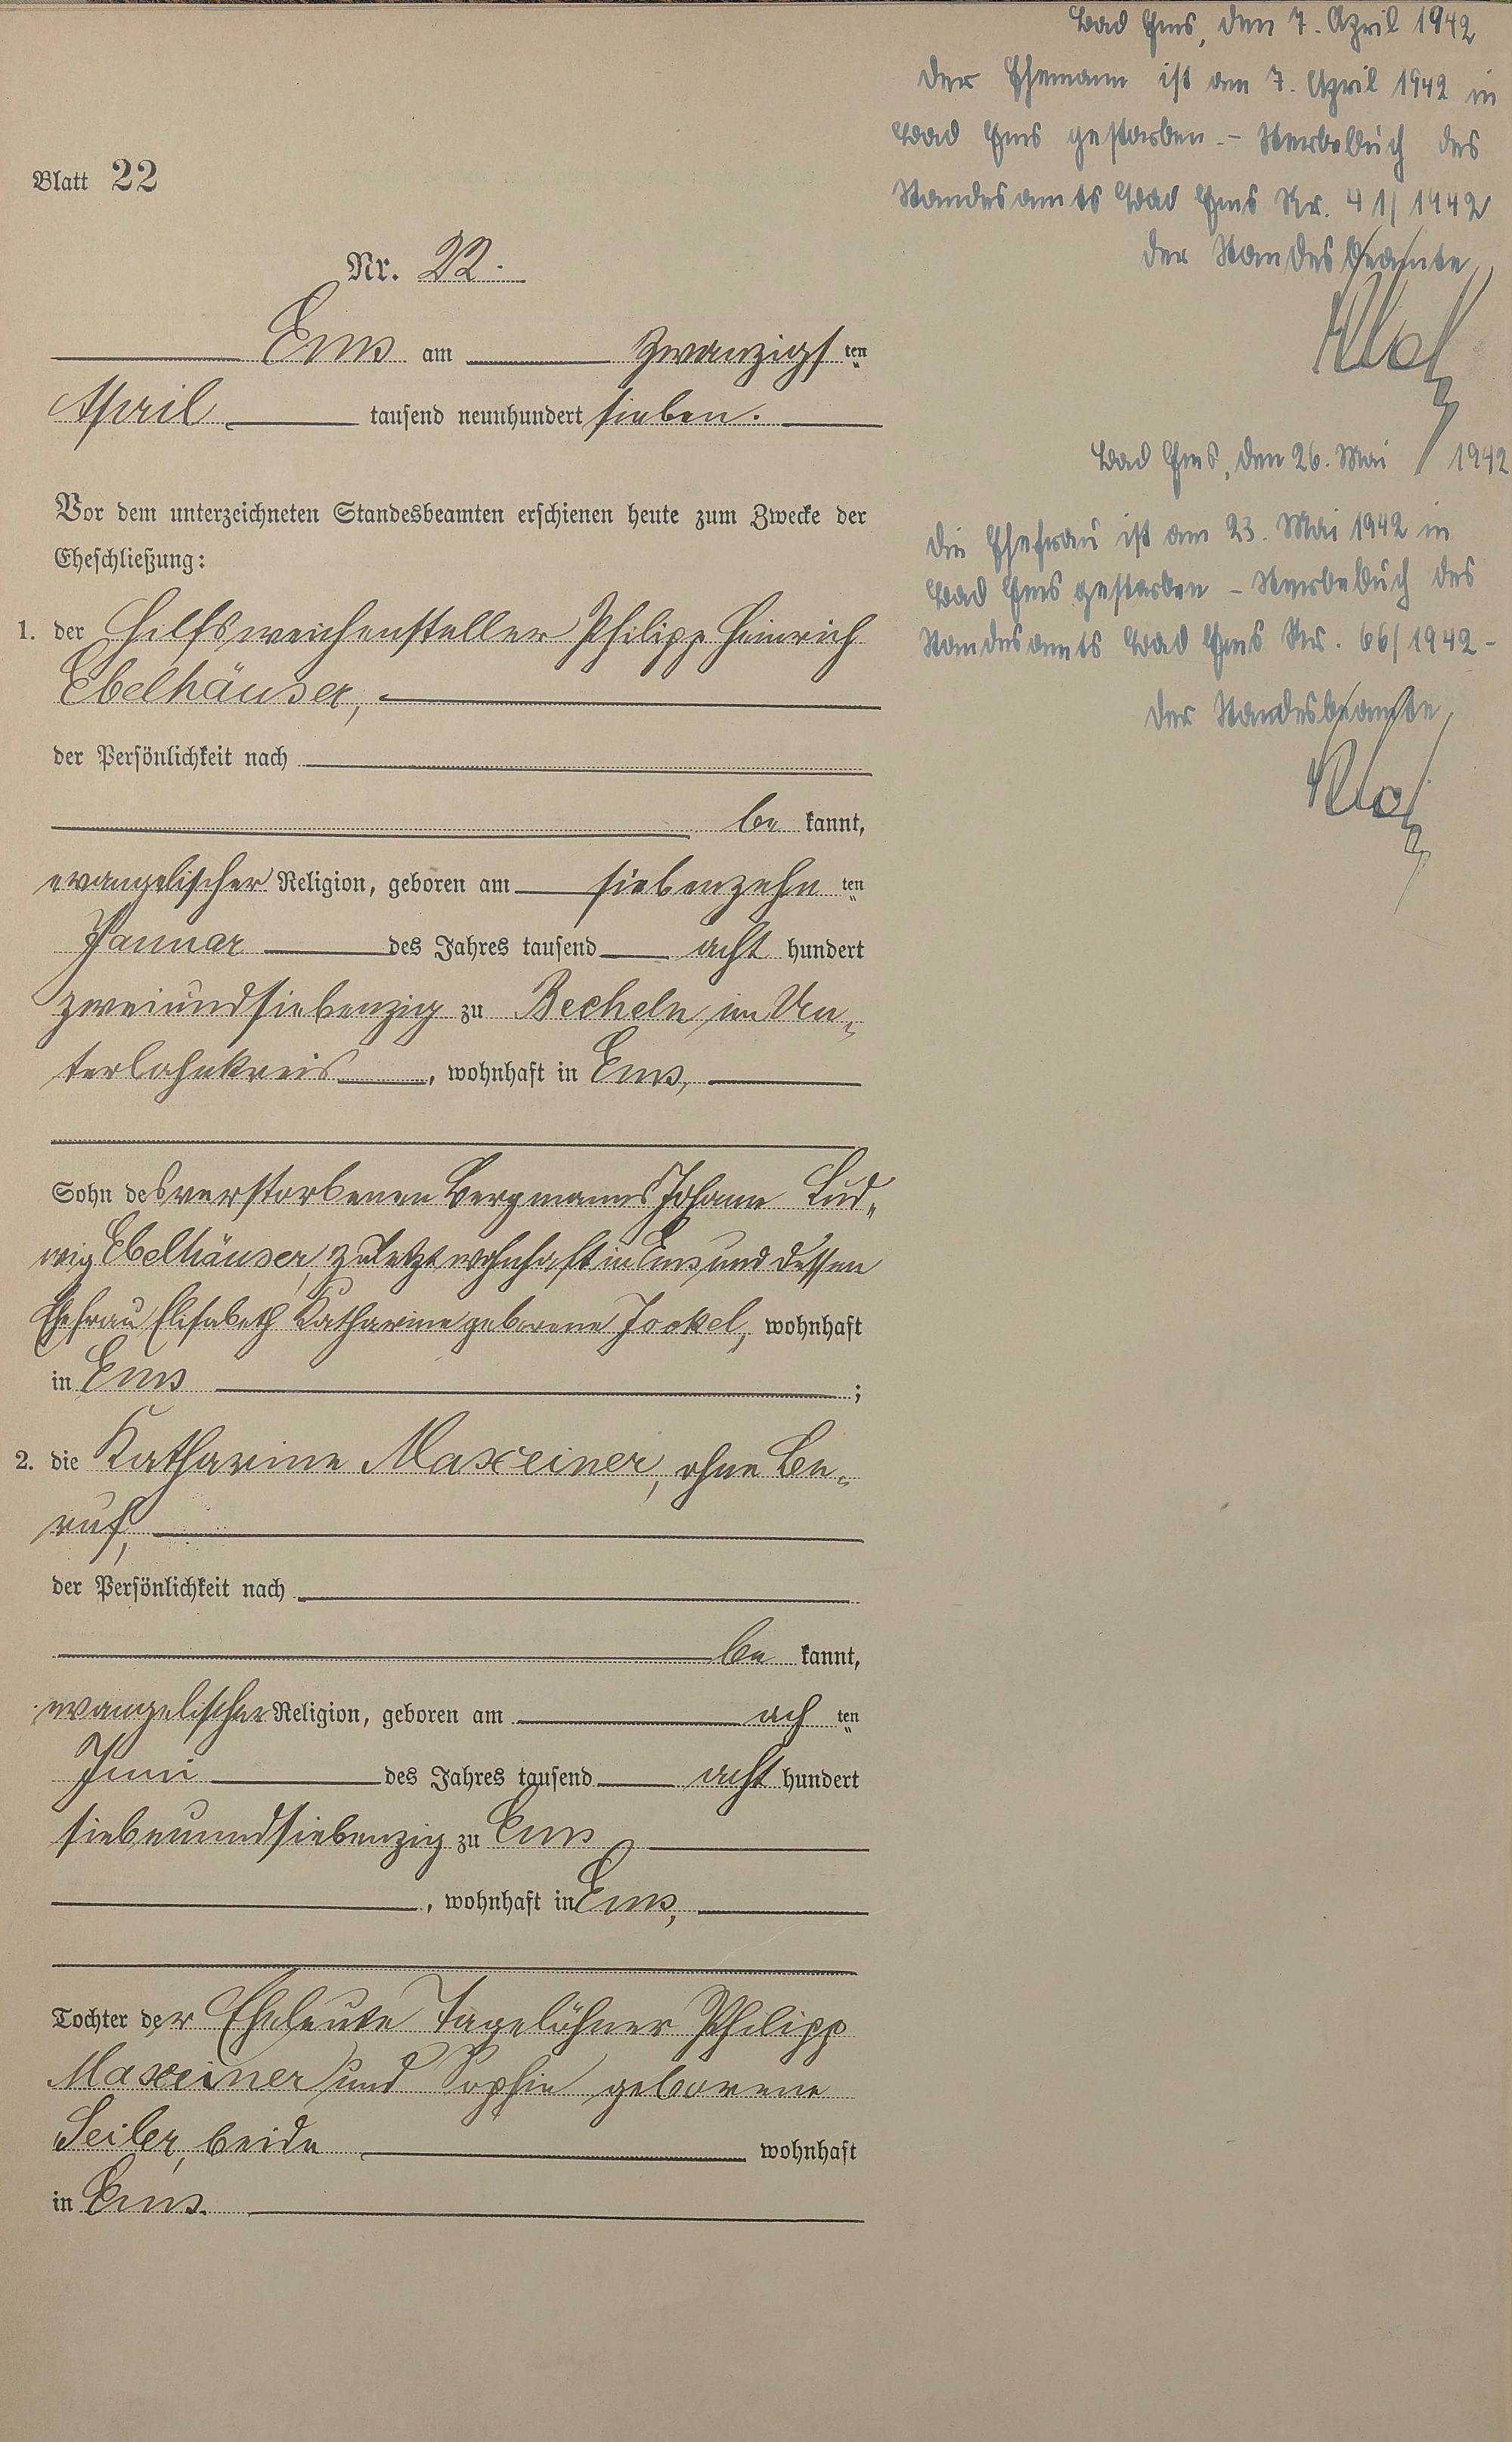 Blatt 22
Nr. 22.
Ems am zwanzigsten
April tausend neunhundert sieben.
Vor dem unterzeichneten Standesbeamten erschienen heute zum Zwecke der
Eheschließung:
1. der Hilfsweichensteller Philipp Heinrich
Ebelhäuser,
der Persönlichkeit nach
be kannt,
evangelischer Religion, geboren am siebenzehn ten
Januar des Jahres tausend acht hundert
zweiundsiebenzig zu Becheln im Un„
terlahnkreis, wohnhaft in Ems,
Sohn des verstorbenen Bergmanns Johann Lud„
wig Ebelhäuser, zuletzt wohnhaft in Ems und dessen
Ehefrau Elisabeth Katharine geborene Jockel, wohnhaft
in Ems ;
2. die Katharine Maxeiner, ohne Be„
ruf,
der Persönlichkeit nach
be kannt,
evangelischer Religion, geboren am ach ten
Juni des Jahres tausend acht hundert
siebenundsiebenzig zu Ems
, wohnhaft in Ems,
Tochter der Eheleute Tagelöhner Philipp
Maxeiner und Sophie geborene
Seiler, beide wohnhaft
in Ems.
Bad Ems, den 7. April 1942
Der Ehemann ist am 7. April 1942 in
Bad Ems gestorben. – Sterbebuch des
Standesamts Bad Ems Nr. 41/1942
Der Standesbeamte
Bad Ems, den 26. Mai 1942
Die Ehefrau ist am 23. Mai 1942 in
Bad Ems gestorben – Sterbebuch des
Standesamts Bad Ems Nr. 66/1942 –
Der Standesbeamte